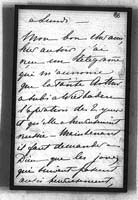 à Lundi —
Mon bon cher ami
hier au soir j'ai
reçu un télégramme
qui m'annonce
que la
a subi à Wiesbaden
l'opération de
et qu'elle a heureusement
Maintenant
il faut demander
Dieu que les jours
qui suivent passent
aussi heureusement